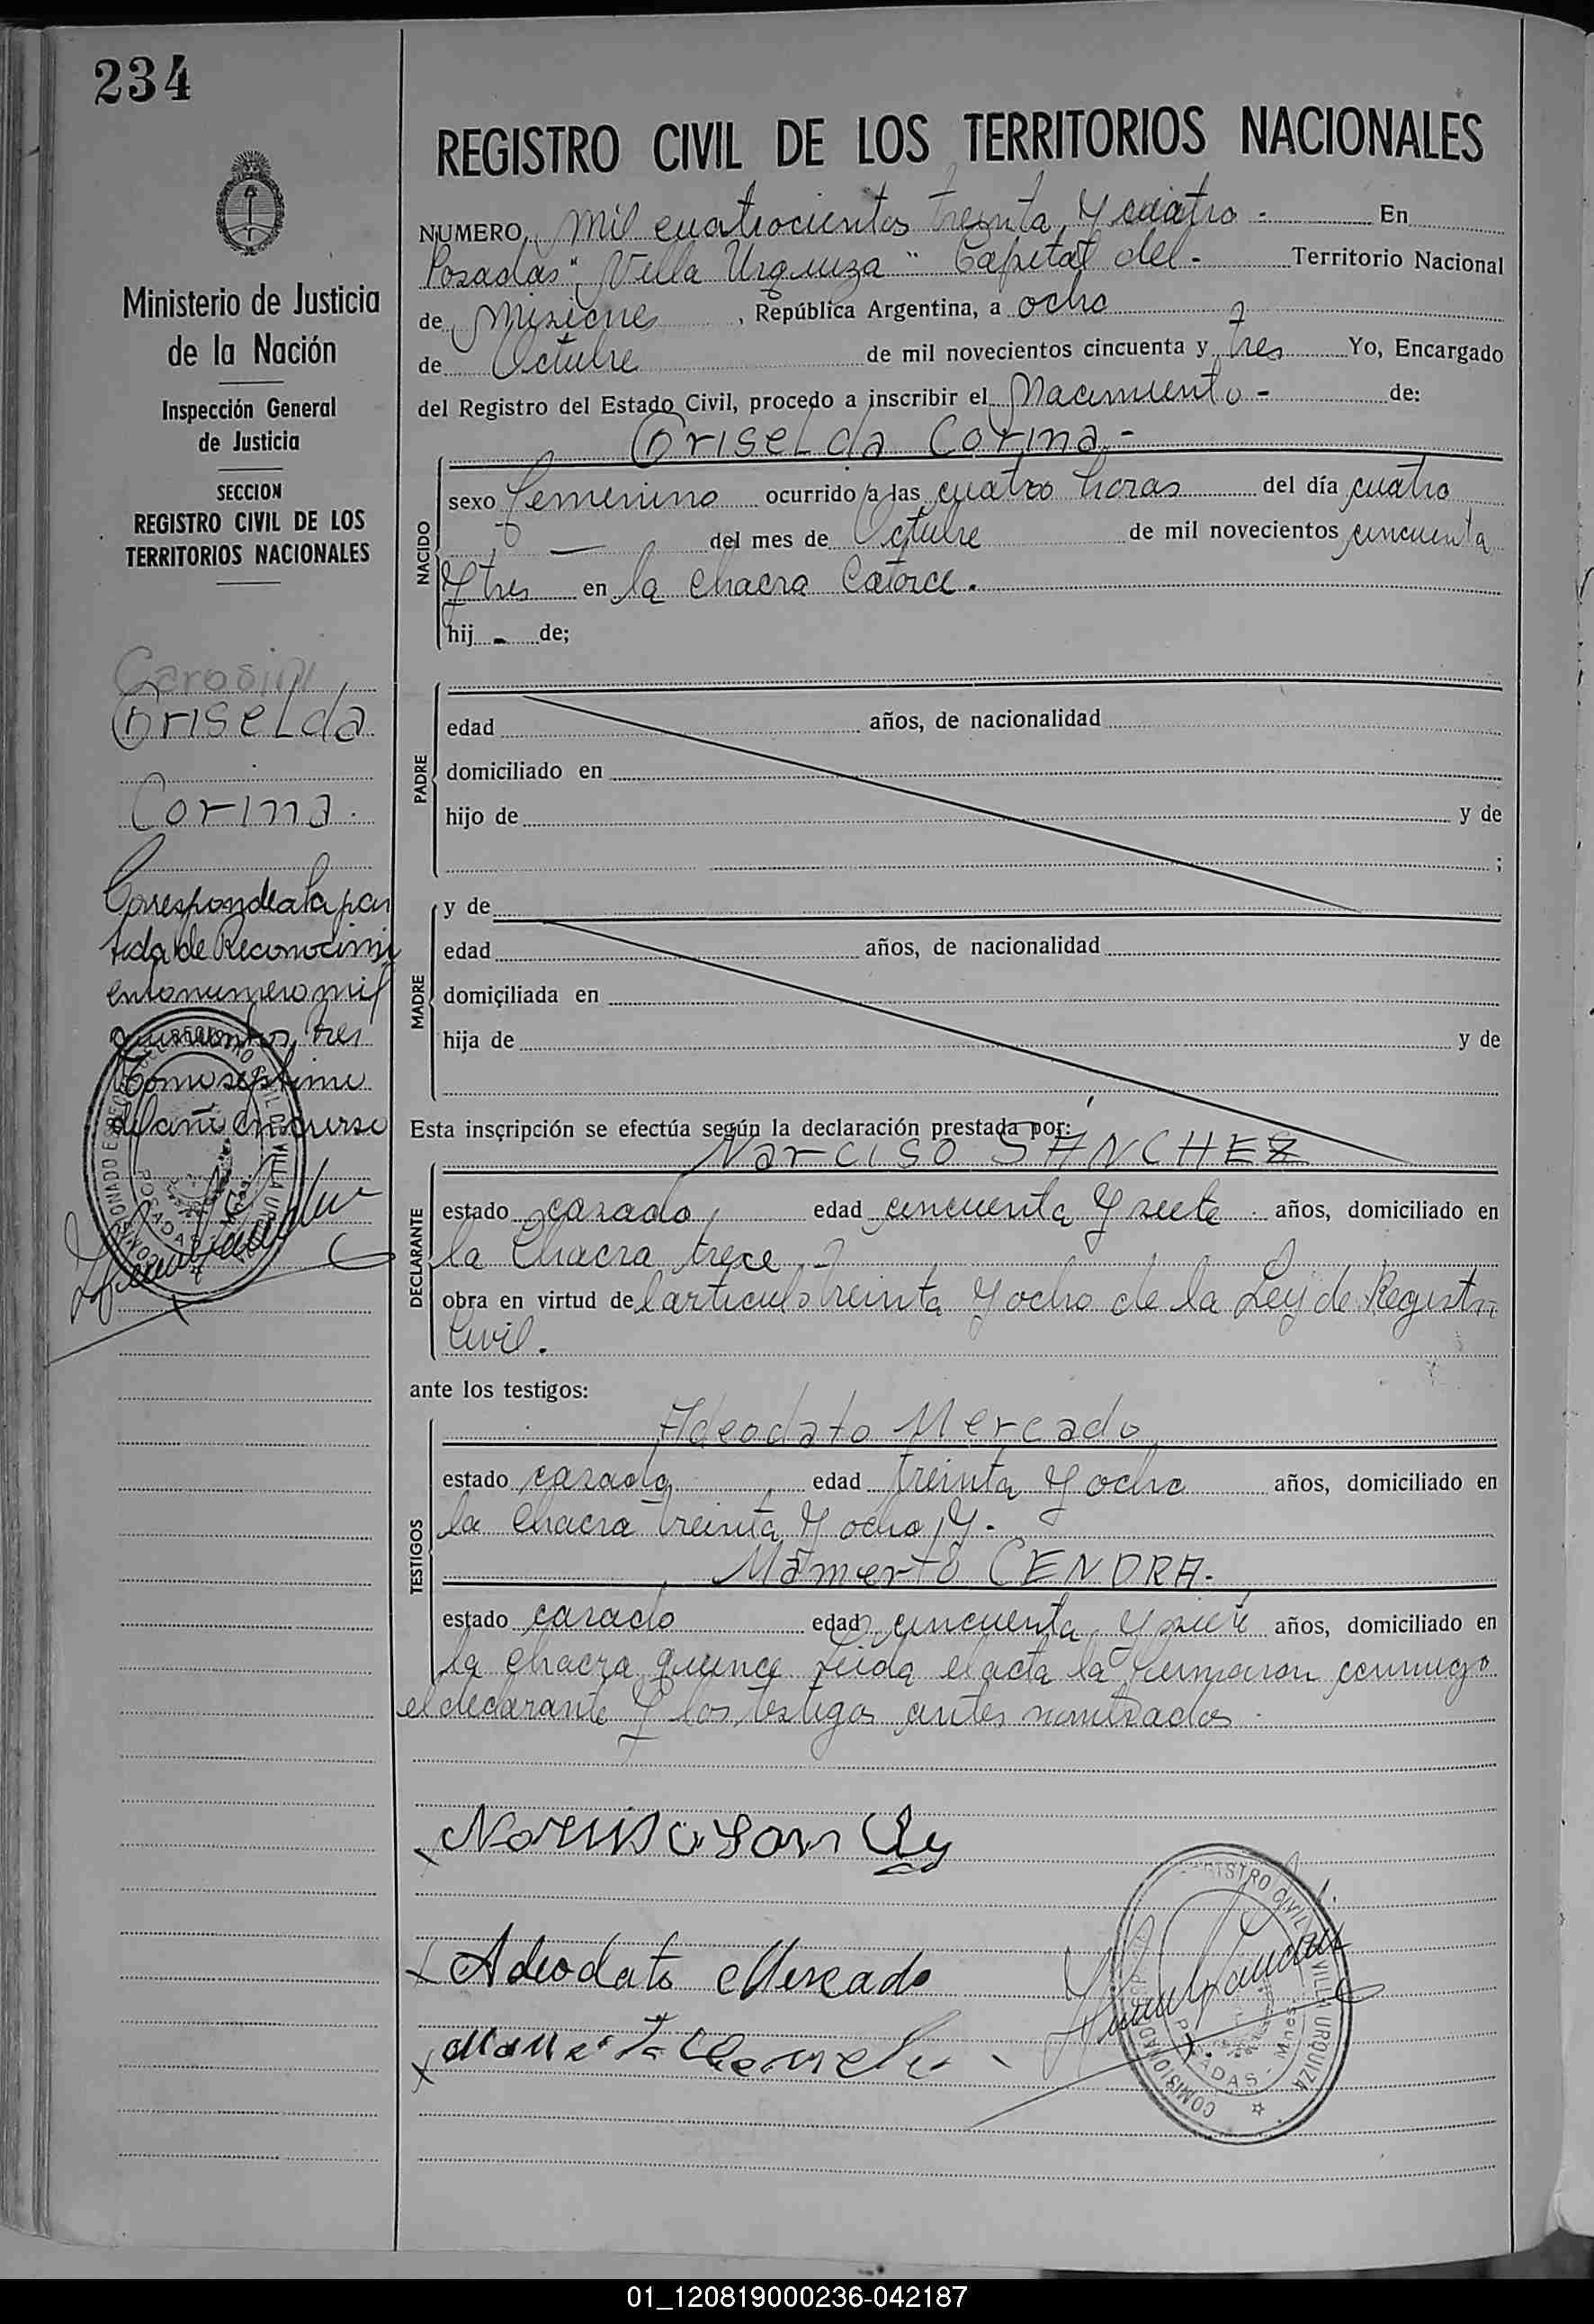 234
Ministerio de Justicia
de la Nación
Inspección General
de Justicia
SECCION
REGISTRO CIVIL DE LOS
TERRITORIOS NACIONALES
Griselda
Corina.
Corresponde a la par
tida de Reconocimi
ento numero mil
quinientos tres
Tomo septimo
del año en curso
REGISTRO CIVIL DE LOS TERRITORIOS NACIONALES
NUMERO mil cuatrocientos treinta y cuatro - En
Posadas "Villa Urquiza" Capital del - Territorio Nacional
de Misiones, República Argentina, a ocho
de Octubre de mil novecientos cincuenta y tres Yo, Encargado
del Registro del Estado Civil, procedo a inscribir el Nacimiento - de:
Griselda Corina -
NACIDO
sexo femenino ocurrido a las cuatro horas del día cuatro
— del mes de Octubre de mil novecientos cincuenta
y tres en la chacra Catorce.
hij - de;
PADRE
edad años, de nacionalidad
domiciliado en
hijo de y de
;
MADRE
y de
edad años, de nacionalidad
domiciliada en
hija de y de
Esta inscripción se efectúa según la declaración prestada por:
Narciso SANCHEZ
DECLARANTE
estado casado, edad cincuenta y siete - años, domiciliado en
la Chacra trece -
obra en virtud del articulo treinta y ocho de la Ley de Registro
Civil.
ante los testigos:
Adeodato Mercado
TESTIGOS
estado casado, edad treinta y ocho años, domiciliado en
la Chacra treinta y ocho, y -
Mamerto CENDRA -
estado casado edad cincuenta y siete años, domiciliado en
la chacra quince Leida el acta la firmaron conmigo
el declarante y los testigos antes nombrados -
Adeodato Mercado
REGISTRO CIVIL VILLA URQUIZA
POSADAS - Mnes.
01_120819000236-042187